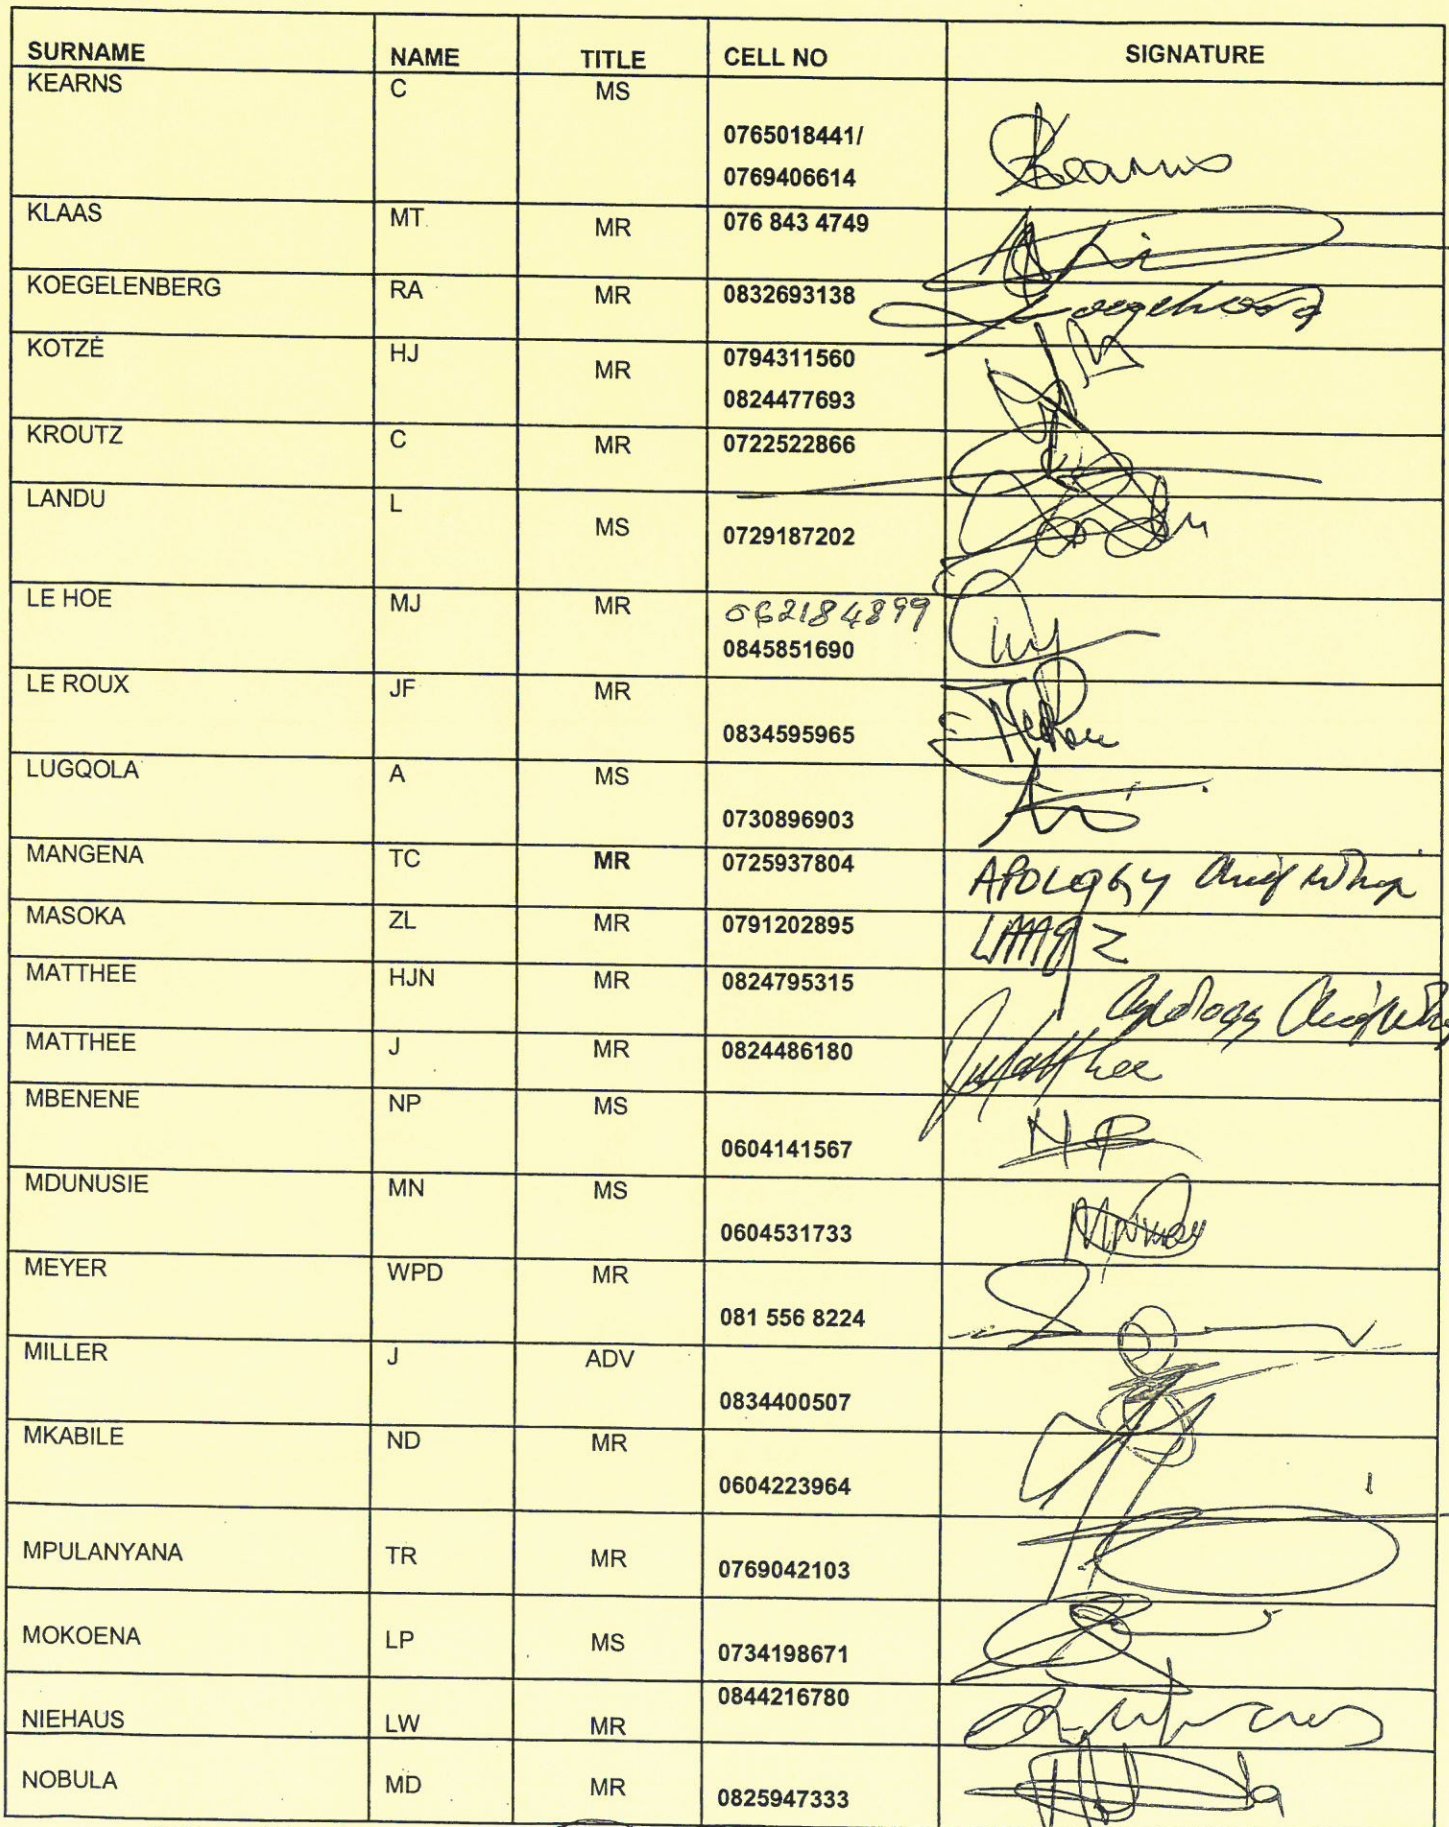 SURNAME NAME TITLE CELL NO SIGNATURE
KEARNS C MS
0765018441/
0769406614 Kearns
KLAAS MT. MR 076 843 4749
KOEGELENBERG RA MR 0832693138
KOTZÉ HJ MR 0794311560
0824477693
KROUTZ C MR 0722522866
LANDU L MS 0729187202
LE HOE MJ MR 062184899
0845851690
LE ROUX JF MR
0834595965
LUGQOLA A MS
0730896903
MANGENA TC MR 0725937804 APOLOGY Chief Whip
MASOKA ZL MR 0791202895
MATTHEE HJN MR 0824795315 Apology Chief Whip
MATTHEE J MR 0824486180 JMatthee
MBENENE NP MS
0604141567 NP
MDUNUSIE MN MS
0604531733
MEYER WPD MR
081 556 8224
MILLER J ADV
0834400507
MKABILE ND MR
0604223964
MPULANYANA TR MR 0769042103
MOKOENA LP MS 0734198671
NIEHAUS LW MR 0844216780
NOBULA MD MR 0825947333